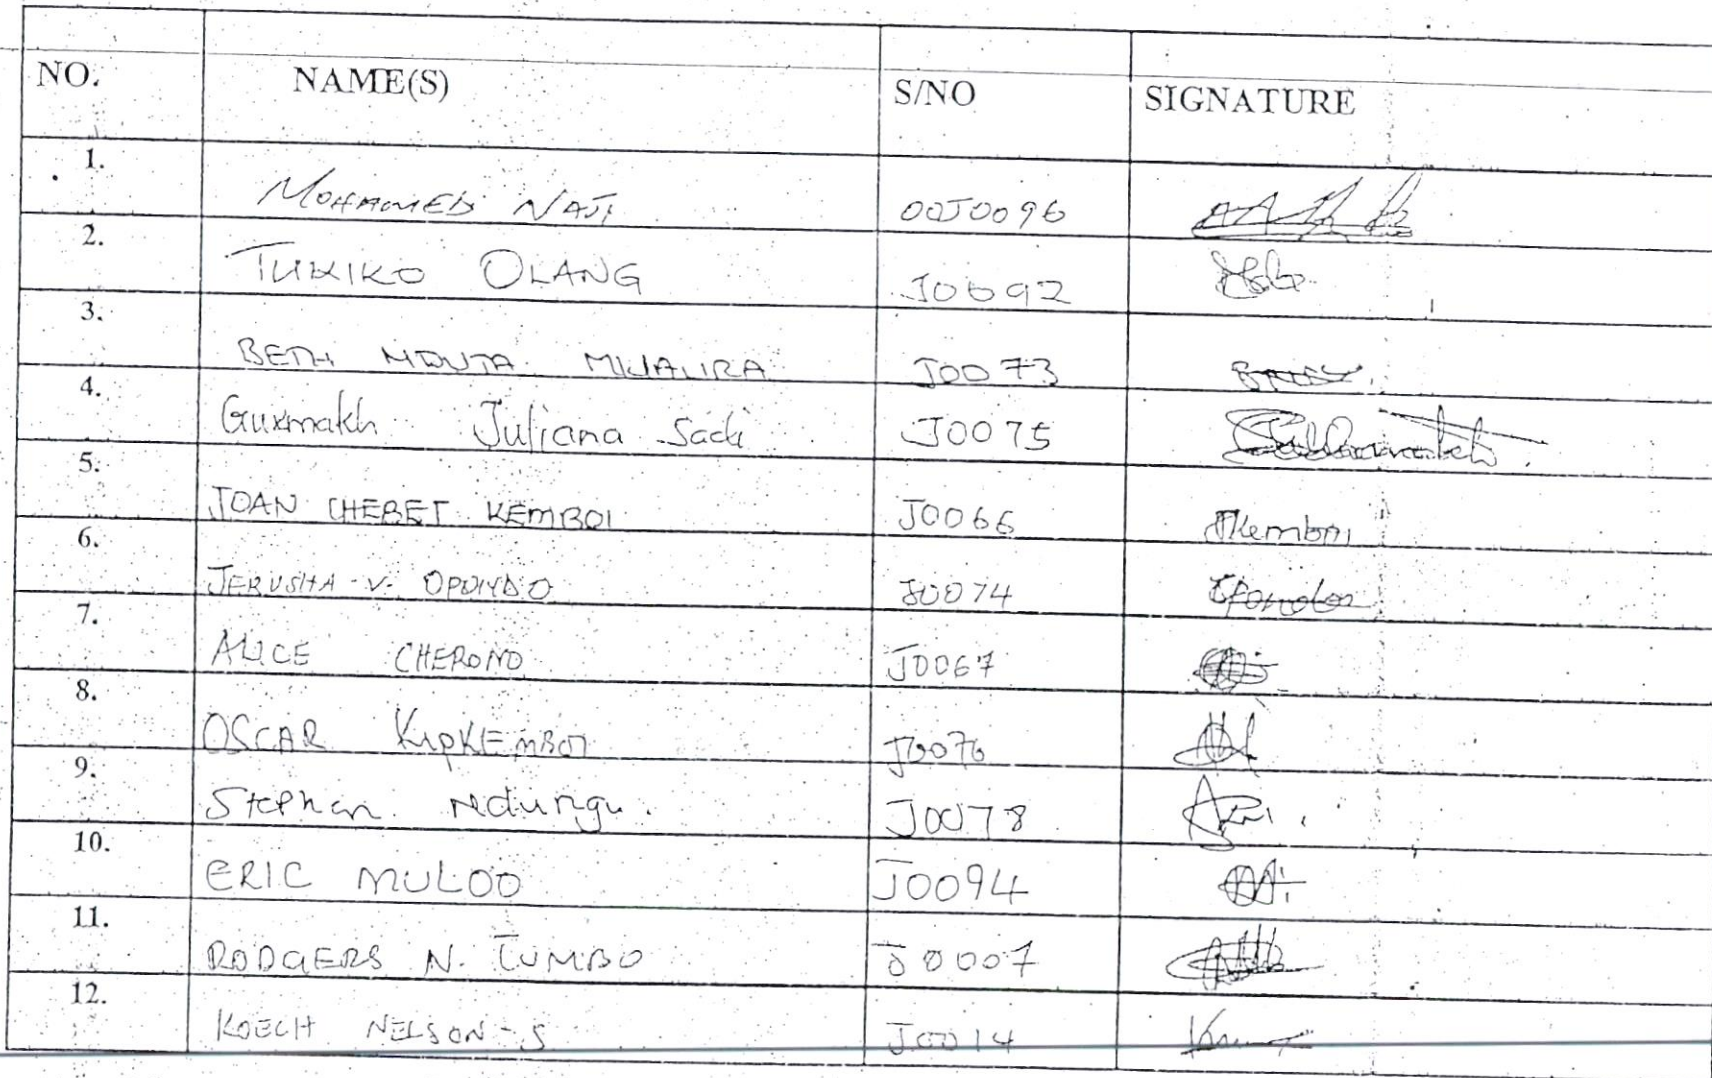 NO. NAME(S) S/NO SIGNATURE
1. MOHAMED NAJI 00J0096
2. TUKIKO OLANG J0092
3. BETH NDUTA MWAURA J0073
4. Guxmakh Juliana Sadi J0075
5. JOAN CHEBET KEMBOI J0066 JKemboi
6. JERUSHA V. OPONDO J0074 Opondo
7. ALICE CHERONO J0067
8. OSCAR KIPKEMBOI J0076
9. Stephen Ndungu. J0078
10. ERIC MULOO J0094
11. RODGERS N. TUMBO J0007
12. KOECH NELSON - S J0014